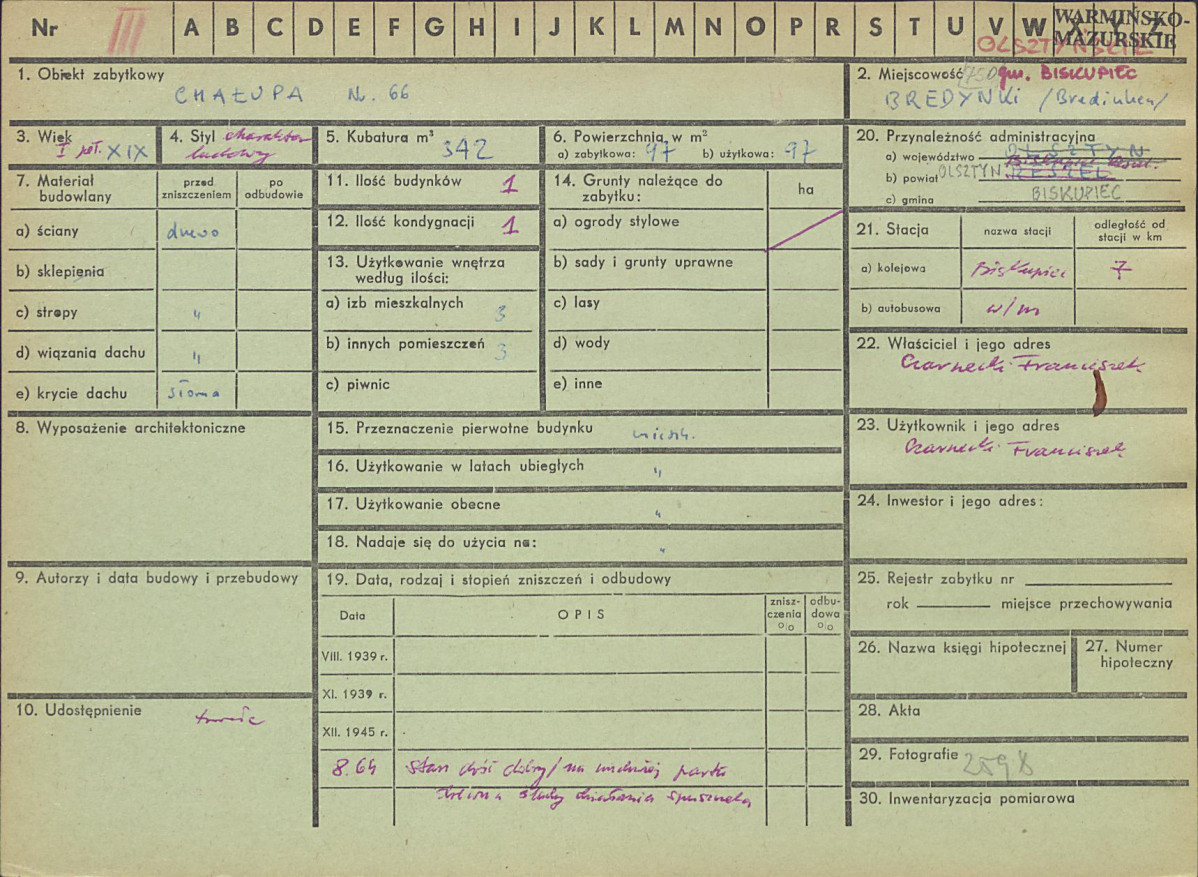 Nr III A B C D E F G H I J K L M N O P R S T U V W X Y Z
WARMIŃSKO-
MAZURSKIE
OLSZTYŃSKIE
1. Obiekt zabytkowy
CHAŁUPA Nr. 66
2. Miejscowość gm. BISKUPIEC
BREDYNKI /Bredinken/
3. Wiek
I poł. XIX
4. Styl charakter
ludowy
5. Kubatura m³ 342
6. Powierzchnia w m²
a) zabytkowa: 97 b) użytkowa: 97
7. Materiał
budowlany
przed
zniszczeniem
po
odbudowie
a) ściany drewno
b) sklepienia
c) stropy "
d) wiązania dachu "
e) krycie dachu słoma
8. Wyposażenie architektoniczne
9. Autorzy i data budowy i przebudowy
10. Udostępnienie
11. Ilość budynków 1
12. Ilość kondygnacji 1
13. Użytkowanie wnętrza
według ilości:
a) izb mieszkalnych 3
b) innych pomieszczeń 3
c) piwnic
14. Grunty należące do
zabytku:
ha
a) ogrody stylowe
b) sady i grunty uprawne
c) lasy
d) wody
e) inne
15. Przeznaczenie pierwotne budynku mieszk.
16. Użytkowanie w latach ubiegłych "
17. Użytkowanie obecne "
18. Nadaje się do użycia na: "
19. Data, rodzaj i stopień zniszczeń i odbudowy
Data
OPIS
znisz-
czenia
%
odbu-
dowa
%
VIII. 1939 r.
XI. 1939 r.
XII. 1945 r.
8.64 stan dość dobry/ na
ślady działania
20. Przynależność administracyjna
a) województwo OLSZTYN
b) powiat OLSZTYN RESZEL
c) gmina BISKUPIEC
21. Stacja
nazwa stacji
odległość od
stacji w km
a) kolejowa Biskupiec 7
b) autobusowa w/m
22. Właściciel i jego adres
Czarnecki Franciszek
23. Użytkownik i jego adres
Czarnecki Franciszek
24. Inwestor i jego adres:
25. Rejestr zabytku nr
rok miejsce przechowywania
26. Nazwa księgi hipotecznej
27. Numer
hipoteczny
28. Akta
29. Fotografie 2598
30. Inwentaryzacja pomiarowa